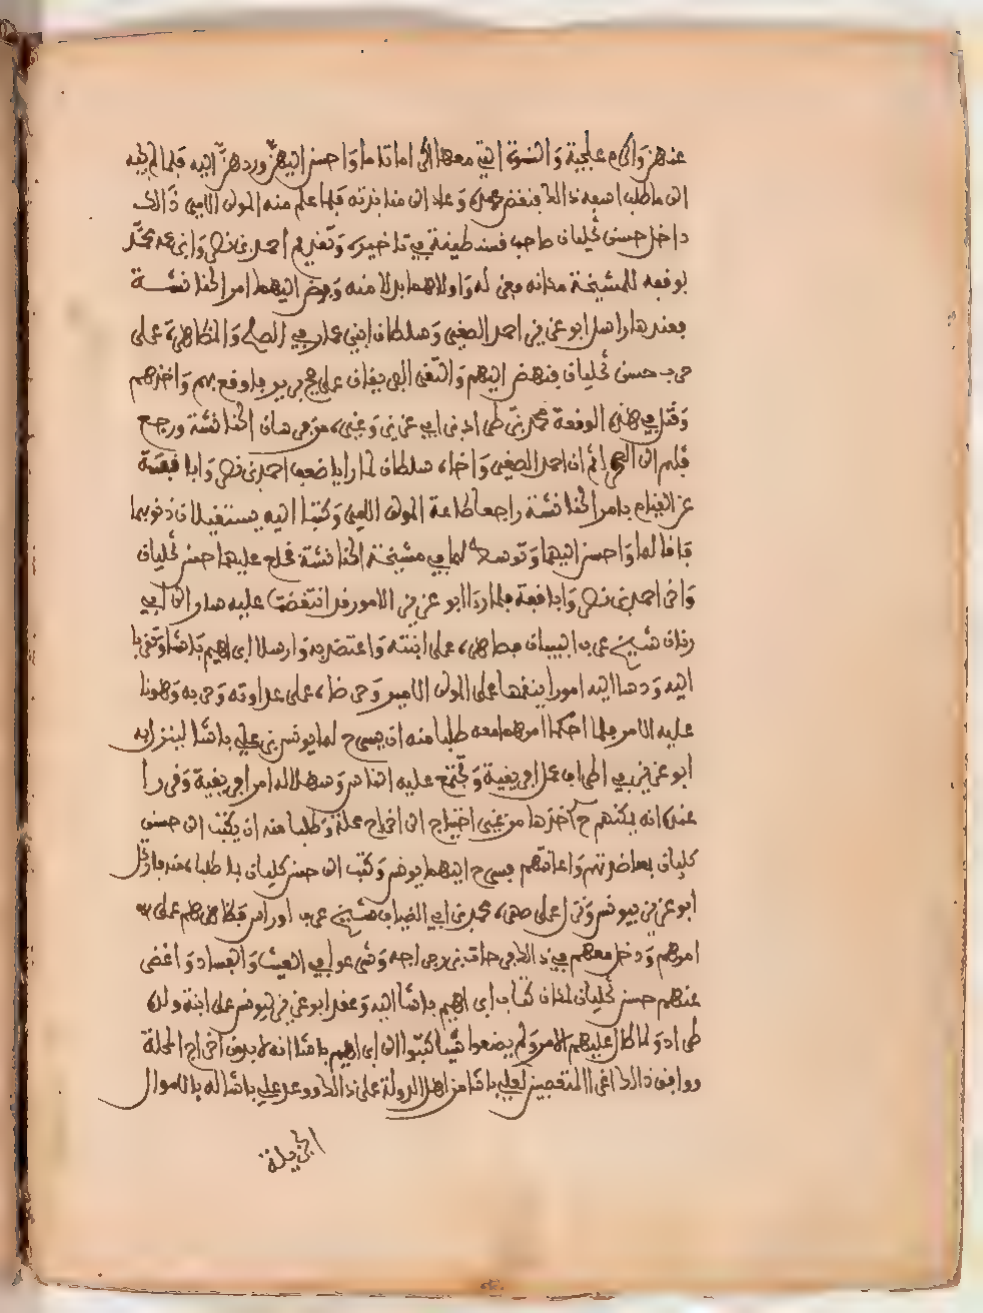 عنهن واكرم علجية والنسوة التي معها اكراما تاما واحسن اليهن وردهن اليه فلما لم يجبه
الى ما طلب اسعد ذالك فنقض عهده وعاد الى منابذته فلما علم منه المولى الامير ذالك
داخل حسن كليان صاحب قسنطينة في تاخيره وتقديم احمد بن نصر وابن عمه محمد
بوقصة للمشيخة مكانه فعزله واولاهما بدلا منه وفوض اليهما امر الحنانشة
فعندها راسل ابو عزيز احمد الصغير وسلطان ابني عمار في الصلح والمظاهرة على
حرب حسن كليان فنهض اليهم والتقى الفريقان على فاوقع بهم واخذهم
وقتل في هذه الوقعة محمد بن طراد بن ابي عزيز وغيره من فرسان الحنانشة ورجع
فلهم الى ثم ان احمد الصغير واخاه سلطان لما رايا ضعف احمد بن نصر وابا قصة
عن القيام بامر الحنانشة راجعا طاعة المولى الامير وكتبا اليه يستقيلان ذنوبهما
فاقالهما واحسن اليهما وتوسط لهما في مشيخة الحنانشة فخلع عليهما حسن كليان
واخر احمد بن نصر وابا قصة فلما رءا ابو عزيز الامور قد انتقضت عليه سار الى ابي
رنان شيخ عرب الزيبان فصاهره على ابنته واعتضد به وارسلا ابراهيم باشا وتقربا
اليه ودسا اليه امورا ينقمها على المولى الامير وحرضاه على عداوته وحربه وهونا
عليه الامر فلما احكما امرهما معه طلبا منه ان يسرح لهما يونس بن علي باشا لينزل به
ابو عزيز في اطراف عمل افريقية وتجتمع عليه الناس وسهلا له امر افريقية وقررا
عنده انه يمكنهم اخذها من غير احتياج الى اخراج محلة وطلبا منه ان يكتب الى حسن
كليان بمعاضدتهم واعانتهم فسرح اليهما يونس وكتب الى حسن كليان بما طلباه منه فارتحل
ابو عزيز بيونس ونزل على صهره محمد بن ابي الضياف شيخ عرب اوراس فظاهرهم على
امرهم ودخل معهم في ذالك فرحات بن مراجه وشرعوا في العيث والفساد واغضى
عنهم حسن كليان لمكان كتاب ابراهيم باشا اليه وعقد ابو عزيز ليونس على ابنة ولده
طراد ولما طال عليهم الامر ولم يصنعوا شيئا كتبوا الى ابراهيم باشا انه لا بد من اخراج المحلة
ووافق ذالك اغراء المتعصبين لعلي باشا من اهل الدولة على ذالك ووعد علي باشا له بالاموال
الجزيلة